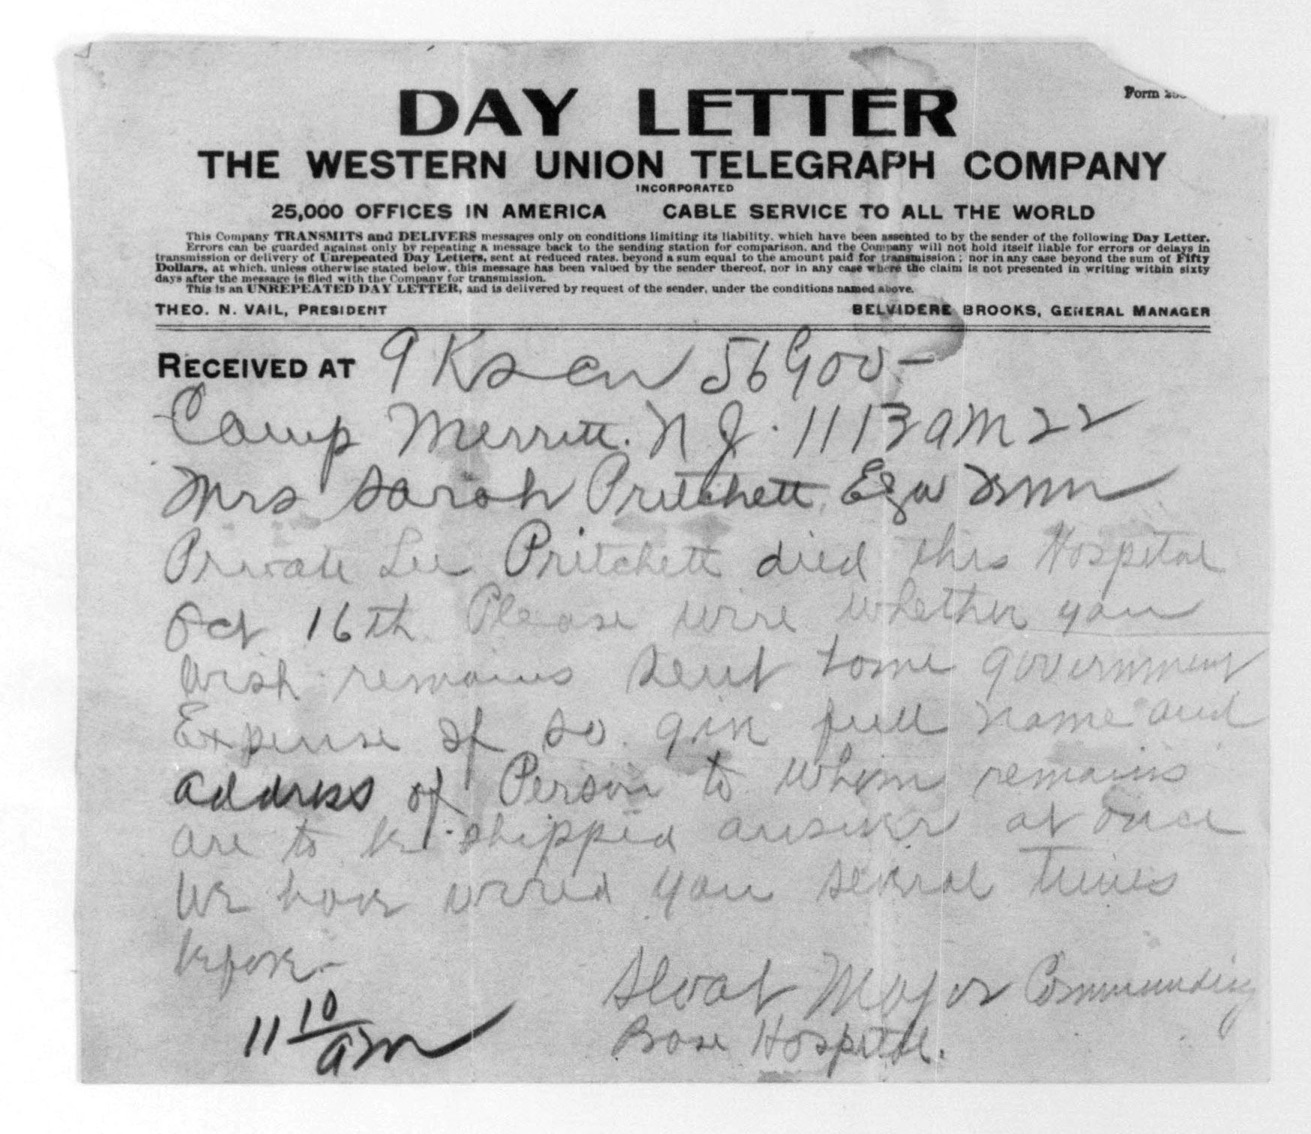 Form
DAY LETTER
THE WESTERN UNION TELEGRAPH COMPANY
INCORPORATED
25,000 OFFICES IN AMERICA CABLE SERVICE TO ALL THE WORLD
This Company TRANSMITS and DELIVERS messages only on conditions limiting its liability, which have been assented to by the sender of the following Day Letter.
Errors can be guarded against only by repeating a message back to the sending station for comparison, and the Company will not hold itself liable for errors or delays in
transmission or delivery of Unrepeated Day Letters, sent at reduced rates, beyond a sum equal to the amount paid for transmission; nor in any case beyond the sum of Fifty
Dollars, at which, unless otherwise stated below, this message has been valued by the sender thereof, nor in any case where the claim is not presented in writing within sixty
days after the message is filed with the Company for transmission.
This is an UNREPEATED DAY LETTER, and is delivered by request of the sender, under the conditions named above.
THEO. N. VAIL, PRESIDENT BELVIDERE BROOKS, GENERAL MANAGER
RECEIVED AT 9 56 Gov-
Camp Merritt. N J. 1113 am 22
Mrs Sarah Pritchett,
Private Lee Pritchett died this Hospital
Oct 16th Please wire whether you
wish remains sent home government
Expense If so give full name and
address of Person to whom remains
are to be shipped answer at once
We have wired you several times
before-
Sloat Major Commanding
Base Hospital.
11 10/am